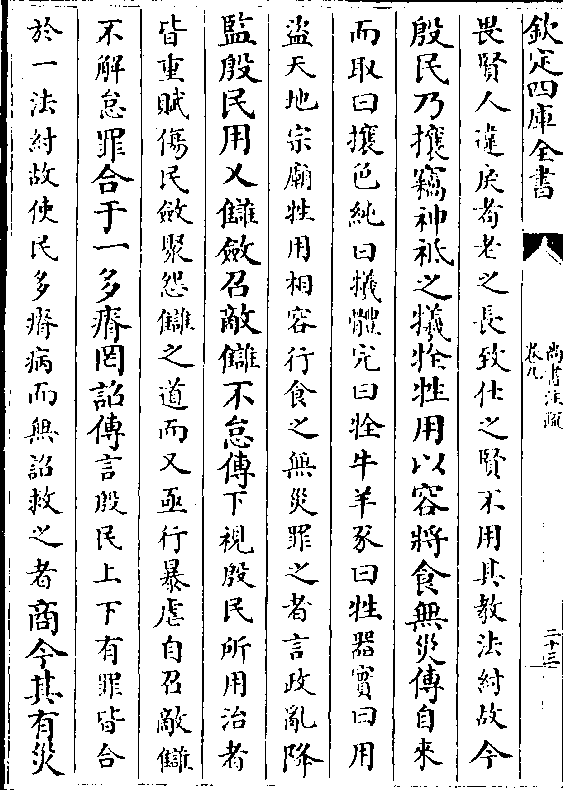 欽定四庫全書
尚書注疏
卷九
二十三
畏賢人違戾耇老之長致仕之賢不用其教法紂故今
殷民乃攘竊神祇之犧牷牲用以容將食無災傳自來
而取曰攘色純曰犧體完曰牷牛羊豕曰牲器實曰用
盜天地宗廟牲用相容行食之無災罪之者言政亂降
監殷民用乂讎斂召敵讎不怠傳下視殷民所用治者
皆重賦傷民斂聚怨讎之道而又亟行暴虐自召敵讎
不解怠罪合于一多瘠罔詔傳言殷民上下有罪皆合
於一法紂故使民多瘠病而無詔救之者商今其有災